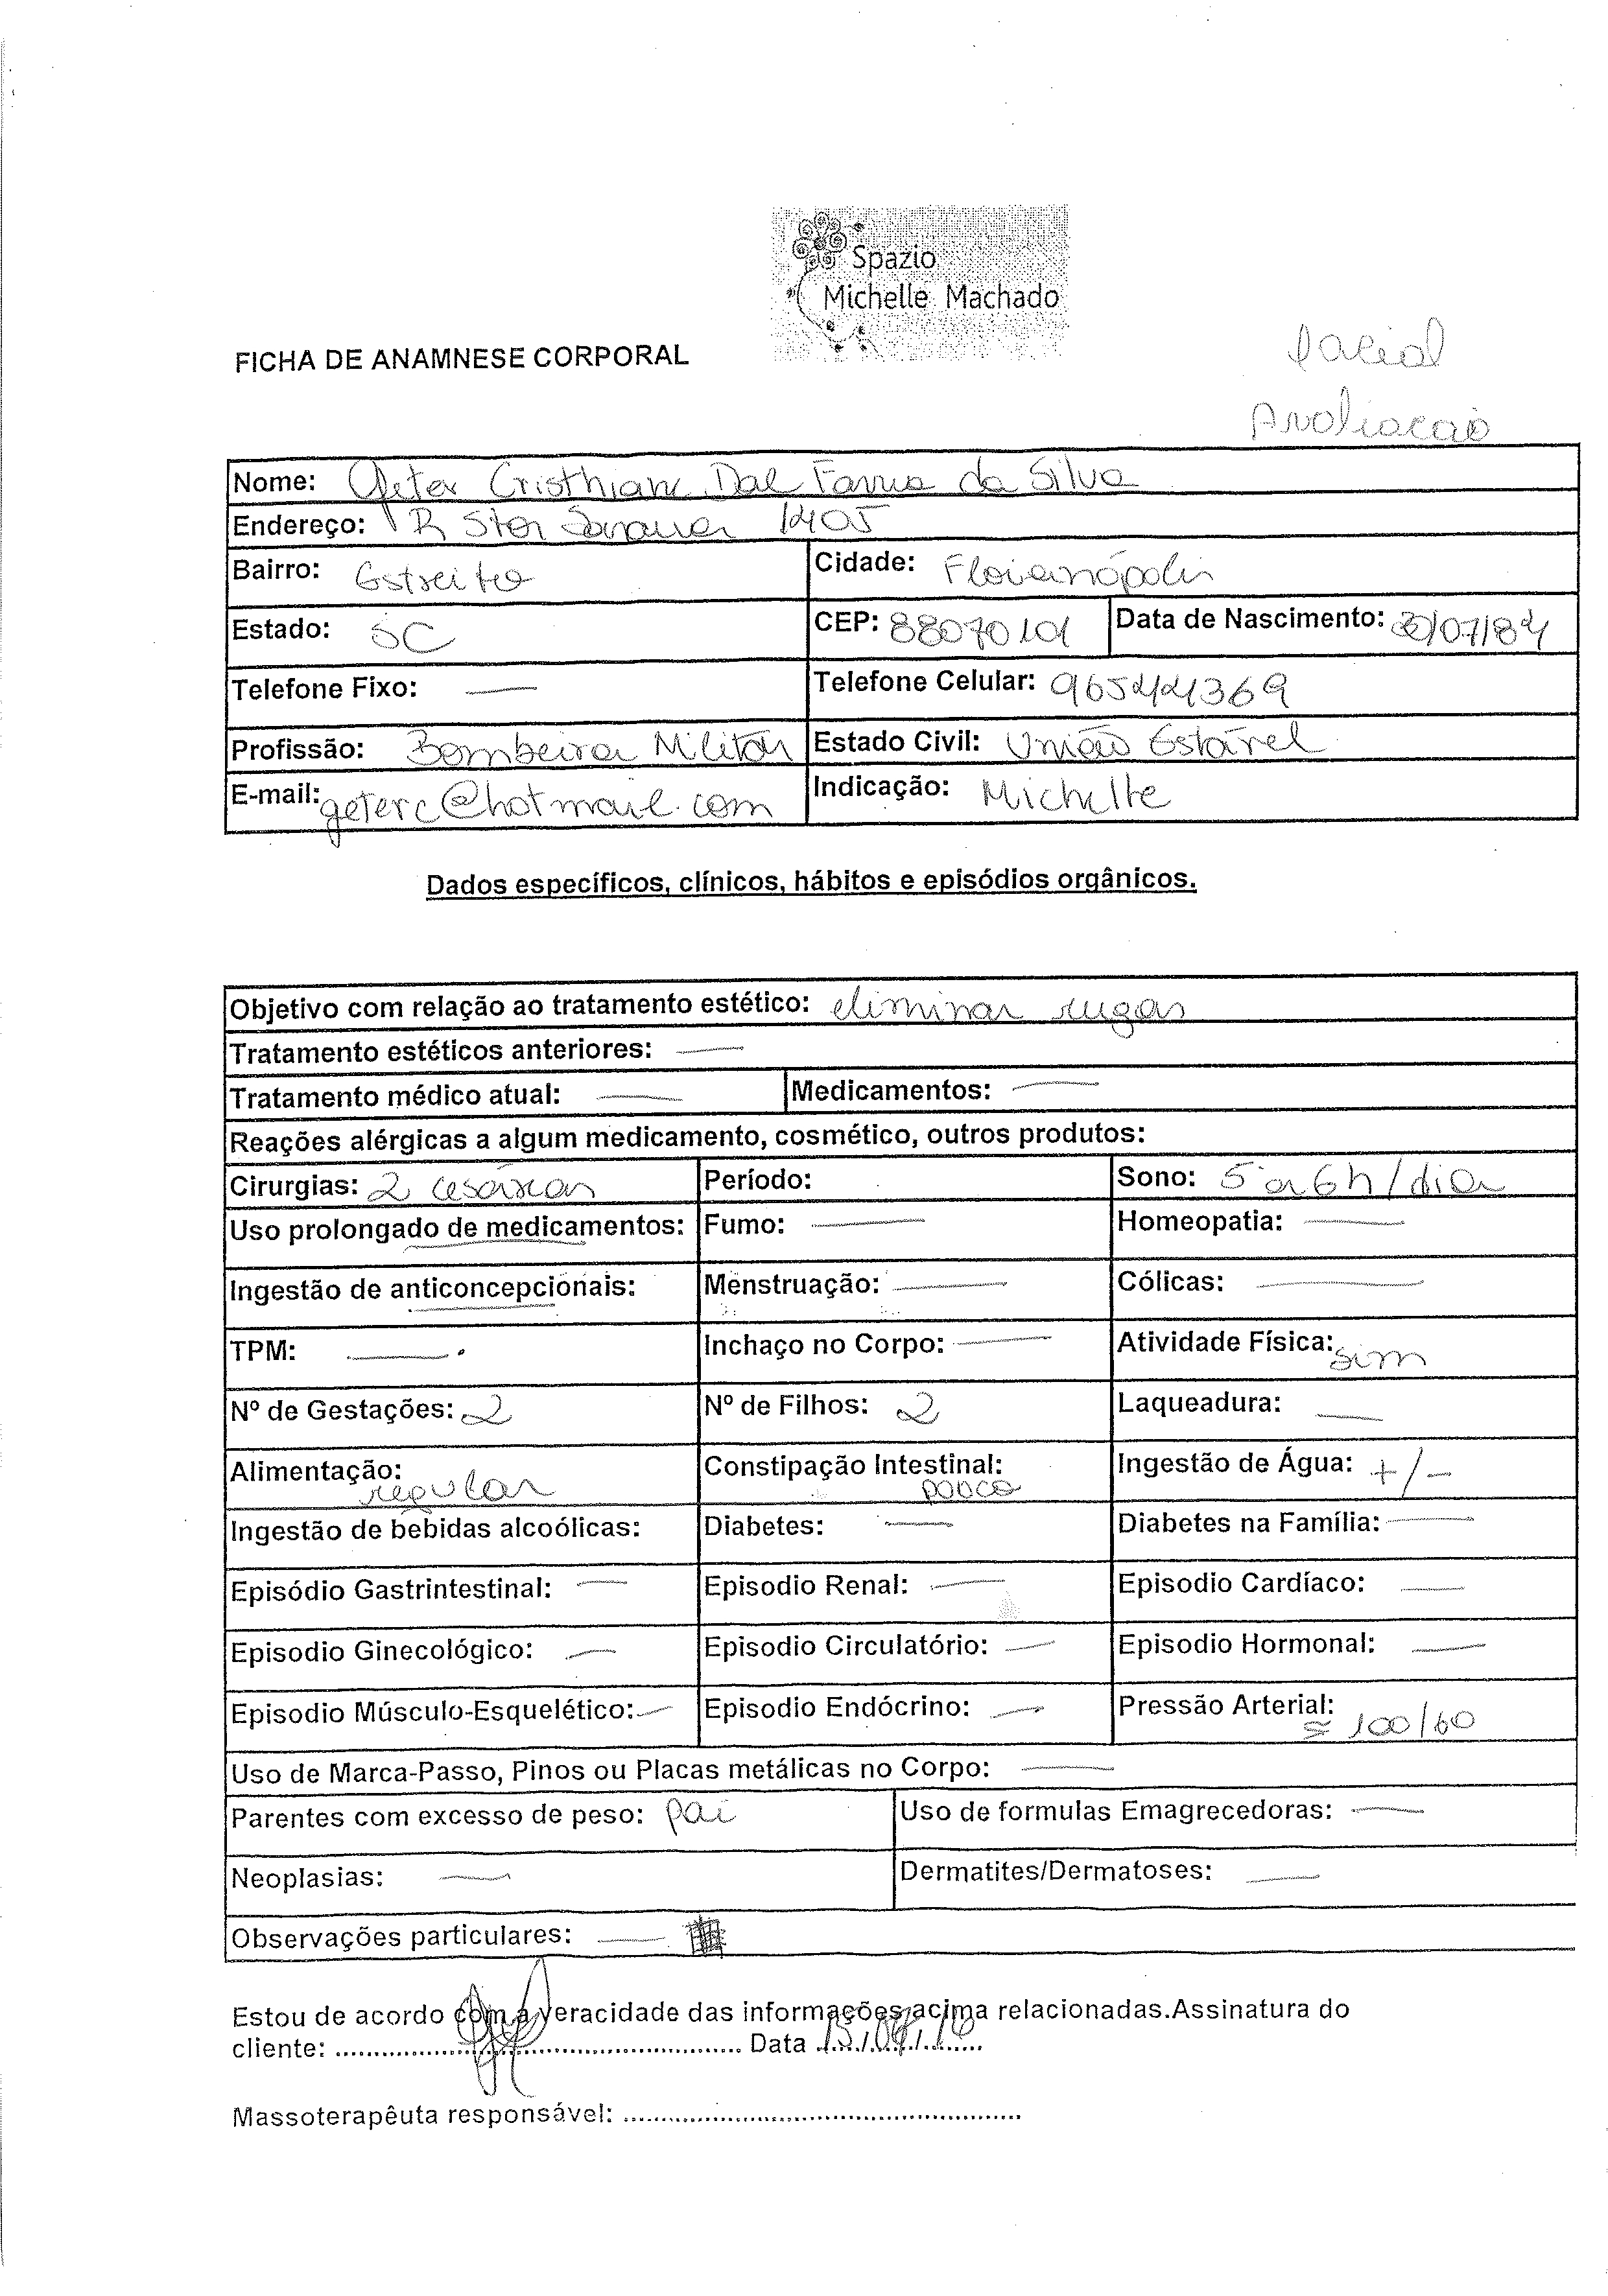 Spazio
Michelle Machado
FICHA DE ANAMNESE CORPORAL
facial
Avaliacao
Nome: Geter Cristhiane Dal Farra da Silva
Endereço: R Sta 1405
Bairro: Estreito Cidade: Florianópolis
Estado: SC CEP: 88070101 Data de Nascimento: /07/84
Telefone Fixo: — Telefone Celular: 96544369
Profissão: Bombeira Militar Estado Civil: União Estável
E-mail: geterc@hotmail.com Indicação: Michelle
Dados específicos, clínicos, hábitos e episódios orgânicos.
Objetivo com relação ao tratamento estético: eliminar rugas
Tratamento estéticos anteriores: —
Tratamento médico atual: — Medicamentos: —
Reações alérgicas a algum medicamento, cosmético, outros produtos:
Cirurgias: 2 cesáreas Período: Sono: 5 a 6h/dia
Uso prolongado de medicamentos: — Fumo: — Homeopatia: —
Ingestão de anticoncepcionais: — Menstruação: — Cólicas: —
TPM: — Inchaço no Corpo: — Atividade Física: sim
Nº de Gestações: 2 Nº de Filhos: 2 Laqueadura: —
Alimentação: regular Constipação Intestinal: pouco Ingestão de Água: +/-
Ingestão de bebidas alcoólicas: Diabetes: — Diabetes na Família: —
Episódio Gastrintestinal: — Episodio Renal: — Episodio Cardíaco: —
Episodio Ginecológico: — Episodio Circulatório: — Episodio Hormonal: —
Episodio Músculo-Esquelético: — Episodio Endócrino: — Pressão Arterial: ≅ 100/60
Uso de Marca-Passo, Pinos ou Placas metálicas no Corpo: —
Parentes com excesso de peso: pai Uso de formulas Emagrecedoras: —
Neoplasias: — Dermatites/Dermatoses: —
Observações particulares: —
Estou de acordo com a veracidade das informações acima relacionadas.Assinatura do
cliente: .......... Data
Massoterapêuta responsável: ..........